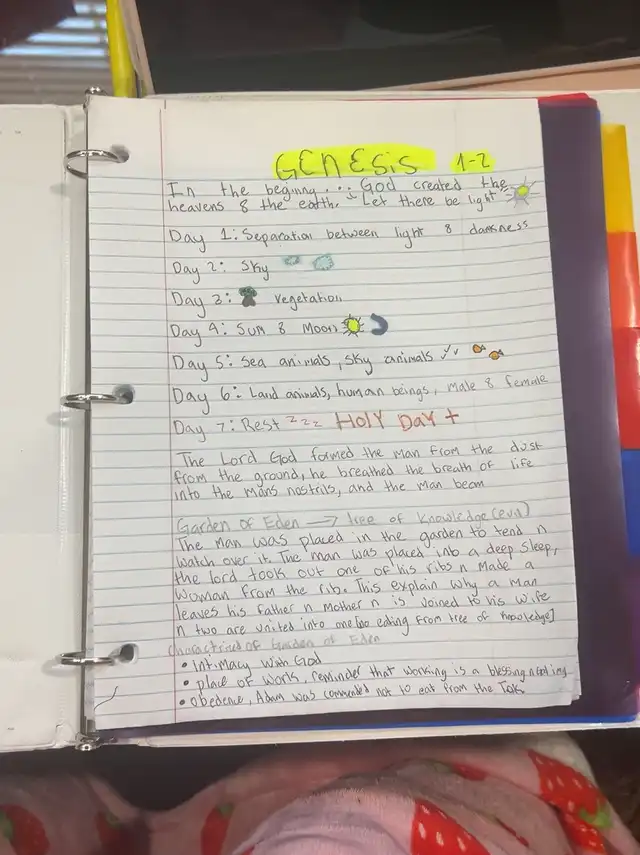 GENESIS 1-2
In the beginng... God created the
heavens & the earth. "Let there be light"
Day 1: Separation between light & darkness
Day 2: Sky
Day 3: vegetation
Day 4: Sun & Moon
Day 5: Sea animals, sky animals
Day 6: Land animals, human beings, male & female
Day 7: Rest zzz HOLY DAY
The Lord God formed the man from the dust
from the ground, he breathed the breath of life
into the mans nostrils, and the man beam
Garden of Eden → tree of knowledge (evil)
The man was placed in the garden to tend n
watch over it. The man was placed into a deep sleep,
the lord took out one of his ribs n made a
woman from the rib. This explain why a man
leaves his father n mother n is joined to his wife
n two are united into one eating from tree of knowledge]
of Garden of Eden
• Intimacy with God
• place of work, reminder that working is a blessing
• obedence, Adam was commended not to eat from the